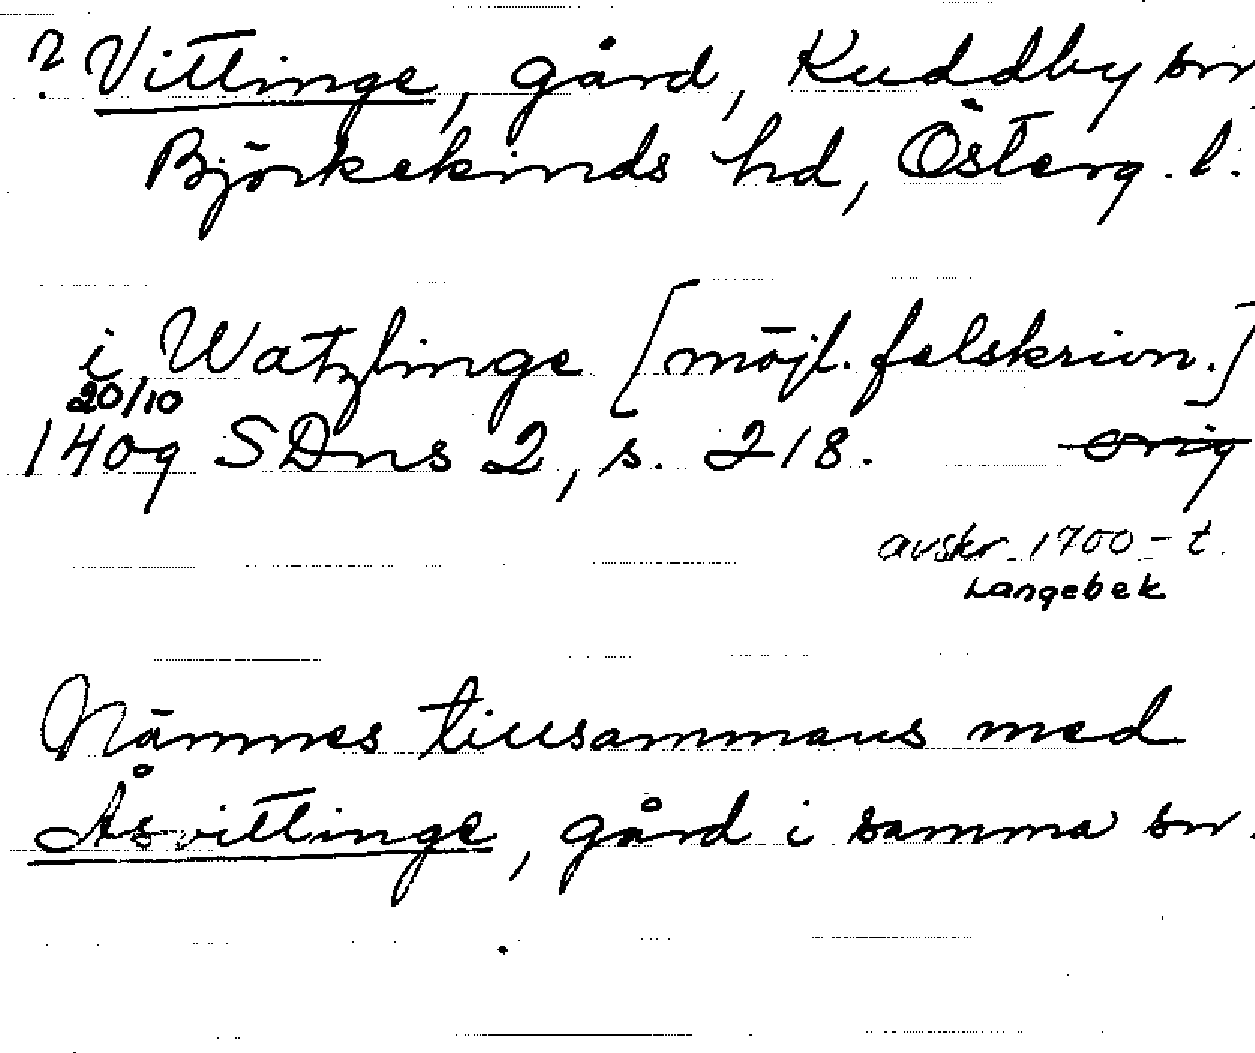 ? Vittinge, gård, Kuddby sn
Björkekinds hd, Österg. l.
i Watzlinge [möjl. felskrivn.]
20/10
1409 SDns 2, s. 218. orig
avskr. 1700-t.
Langebek
Nämnes tillsammans med
Åsvittinge, gård i samma sn.